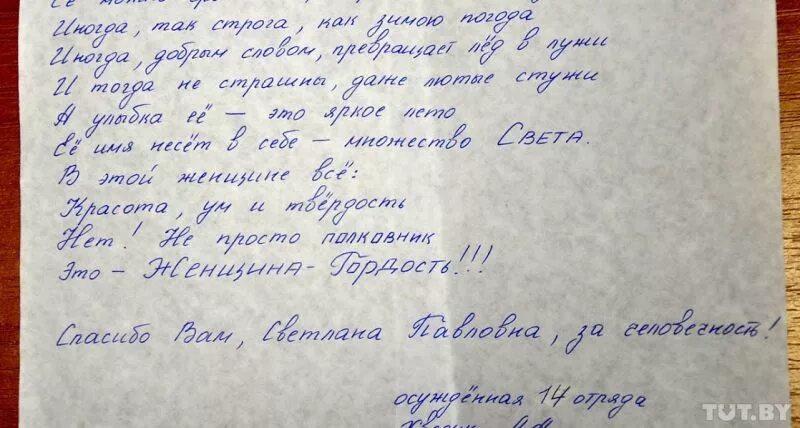 Иногда, так строга, как зимою погода
Иногда, добрым словом, превращает лёд в лужи
И тогда не страшны, даже лютые стужи
А улыбка её — это яркое лето
Её имя несёт в себе — множество СВЕТА.
В этой женщине всё:
Красота, ум и твёрдость
Нет! Не просто полковник
Это — ЖЕНЩИНА - ГОРДОСТЬ!!!
Спасибо Вам, Светлана Павловна, за человечность!
осуждённая 14 отряда
TUT.BY